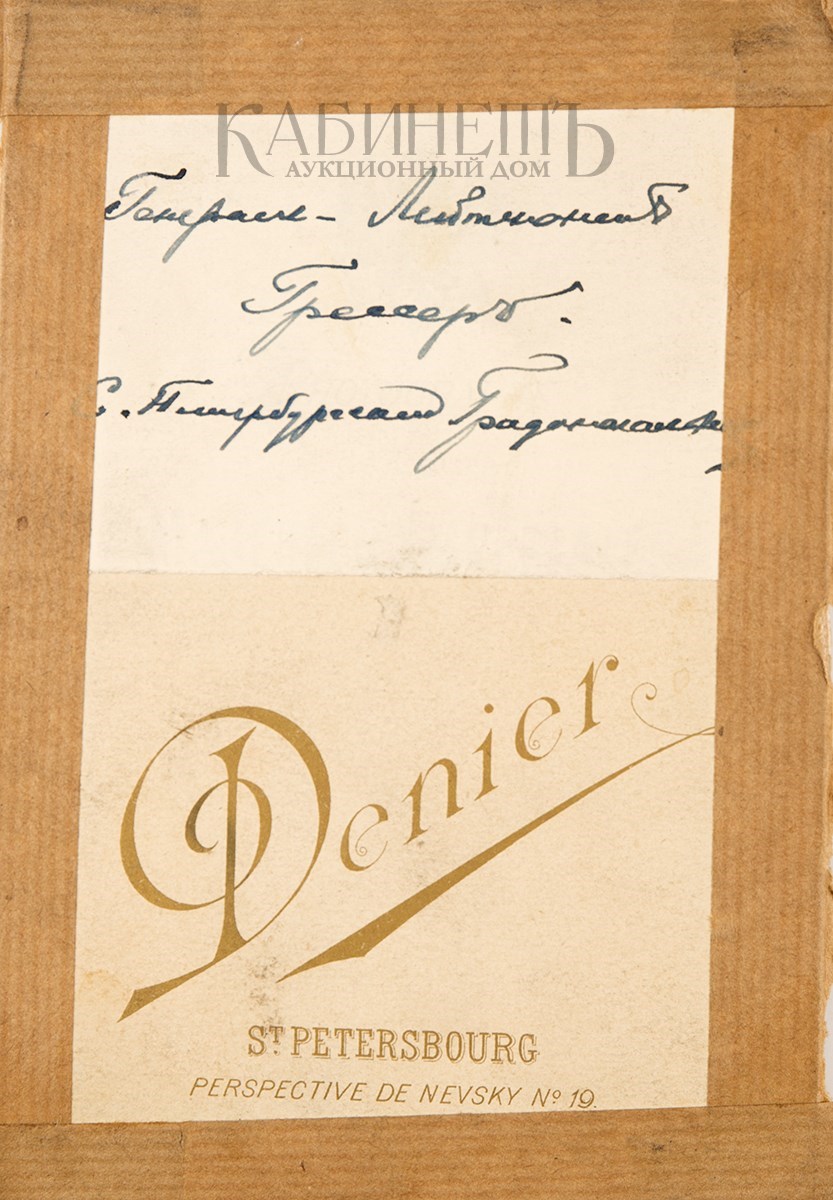 КАБИНЕТЪ
АУКЦИОННЫЙ ДОМ
Генералъ-Лейтенантъ
Грессеръ.
С. Петербургскій Градоначальн
Denier
ST. PETERSBOURG
PERSPECTIVE DE NEVSKY No 19.